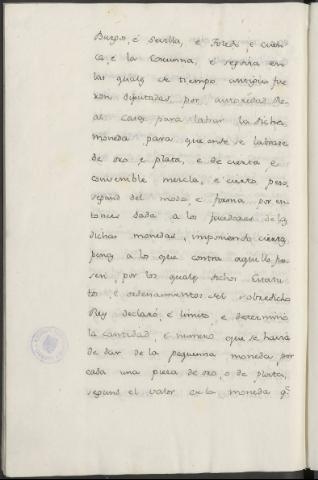 Burgos, é Sevilla, e Toledo, e Cuen-
ca, e la Corunna, é segovia en
las quales de tiempo antiguo fue
ron diputadas por autoridad Re-
al casas para labrar la dicha
moneda, para que onde se labrase
de oro e plata, e de cierta e
convenible mezcla, e cierto peso,
segund del modo e forma por en-
tonces dada a los facedores de las
dichas monedas, imponiendo ciertas
penas a los que contra aquello fue-
sen, por los quales dichos Estatu-
to, é ordenamientos del sobredicho
Rey declaró, é limito, e determino
la cantidad, é numero que se havia
de dar de la pequenna moneda, por
cada una pieza de oro, o de plata,
segund el valor en la moneda q.e